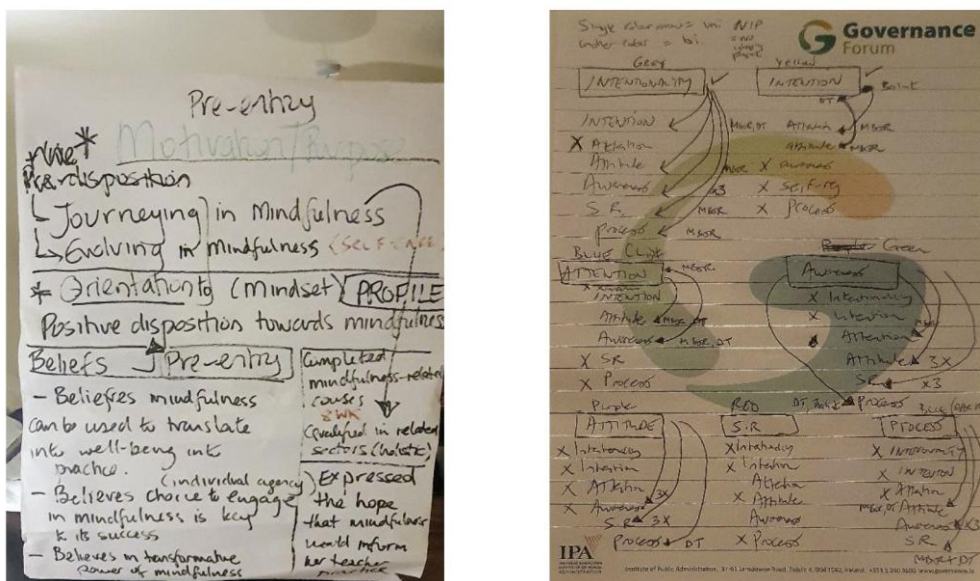 Pre-entry
Motivation/Purpose
Predisposition
Journeying in mindfulness
Evolving in mindfulness
Orientation to (mindset) PROFILE
Positive disposition towards mindfulness
Beliefs
Pre-entry
- Beliefres mindfulness
can be used to translate
into well-being into
practice.
(individual agency)
- Believes choice to engage
in mindfulness is key
to its success
- Believes in transformative
power of mindfulness
Completed
mindfulness-related
courses
8WK
Qualified in related
sectors (holistic)
Expressed
the hope
that mindfulness
would inform
her teacher
Governance
Forum
= bi.
NIP
Grey
INTENTIONALITY
INTENTION
X Attention
Attitude
Awareness
S.R.
process
Yellow
INTENTION
DT
Attention MBSR
attitude MBSR
X awareness
X self-reg
X process
BLUE
ATTENTION
INTENTION
Attitude MBSR, DT
Awareness MBSR, DT
X SR
X Process
Green
Awareness
X Intentionality
X Intention
Attention
Attitude 3X
SR X3
process
Purple
ATTITUDE
X Intentionality
X Intention
X Attention
X Awareness 3X
SR 3X
Process DT
RED
S.R
X Intentionality
X Intention
Attention
X Attitude
Awareness
X Process
PROCESS
X INTENTIONALITY
X INTENTION
X Attention
Attitude
Awareness X3
SR
MBSR + DT
IPA
Institute of Public Administration,